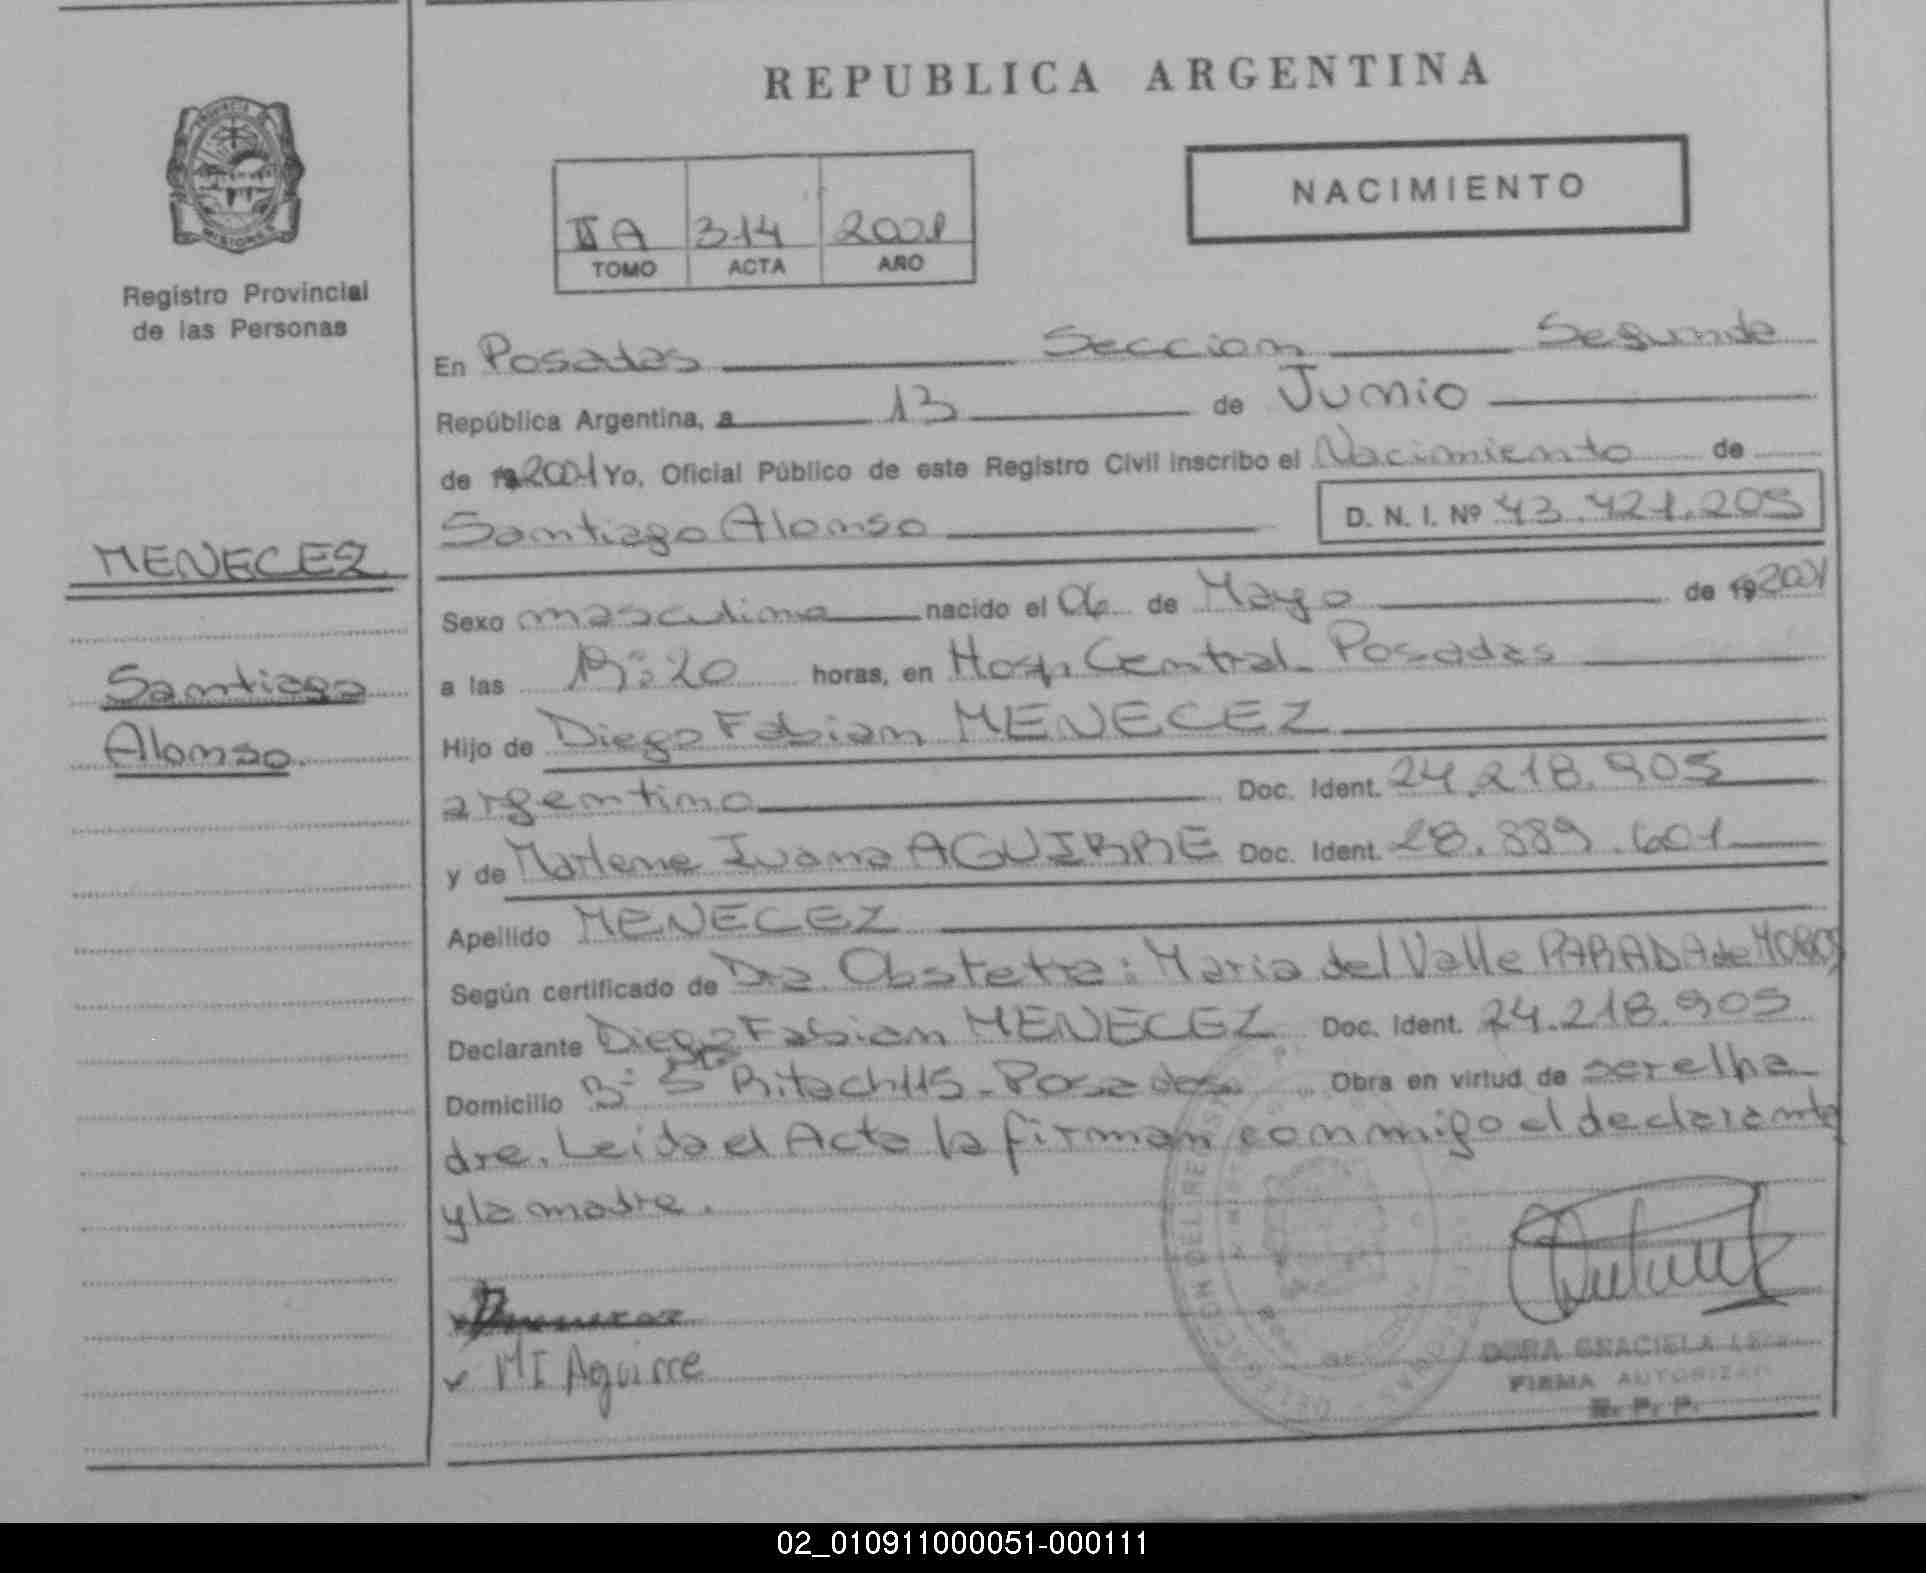 REPUBLICA ARGENTINA
NACIMIENTO
II A 314 2001
TOMO ACTA AÑO
Registro Provincial
de las Personas
MENECEZ
Santiago
Alonso.
En Posadas Seccion Segunda
República Argentina, a 13 de Junio
de 192001 Yo, Oficial Público de este Registro Civil inscribo el Nacimiento de
Santiago Alonso D. N. I. Nº 43.421.205
Sexo masculino nacido el 06 de Mayo de 192001
a las 19:20 horas, en Hosp. Central - Posadas
Hijo de Diego Fabian MENECEZ
argentino Doc. Ident. 24.218.905
y de Marlene Ivana AGUIRRE Doc. Ident. 28.889.601
Apellido MENECEZ
Según certificado de Dra. Obstetra: Maria del Valle PARADA de
Declarante Diego Fabian MENECEZ Doc. Ident. 24.218.905
Domicilio Posadas Obra en virtud de ser el pa
dre. Leida el Acta la firman conmigo el declarante
y la madre.
MI Aguirre
DORA GRACIELA
FIRMA
R. P. P.
02_010911000051-000111